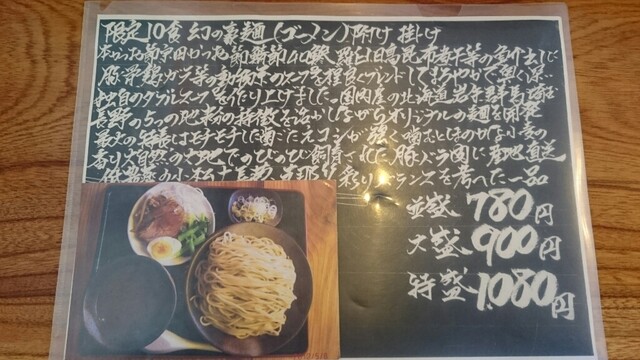 限定10食 幻の豪麺(ゴーメン)付け 掛け
本からお節宗田かつお節鯖節 日高昆布煮干等の魚介出し
豚骨鶏ガラ等の動物系のスープを程良くブレンドしてまろやかで奥く深い
独自のダブルスープを作り上げました。国内産の北海道岩手群馬埼玉
長野の5つの地粉の特徴を活かしながらオリジナルの麺を開発
最大の特長はモチモチした歯ごたえコシが強く噛むとほのかな小麦の
香り大自然の大地でのびのび飼育された豚バラ肉に産地直送
小松
彩りバランスを考へた一品
並盛 780円
大盛 900円
特盛 1,080円